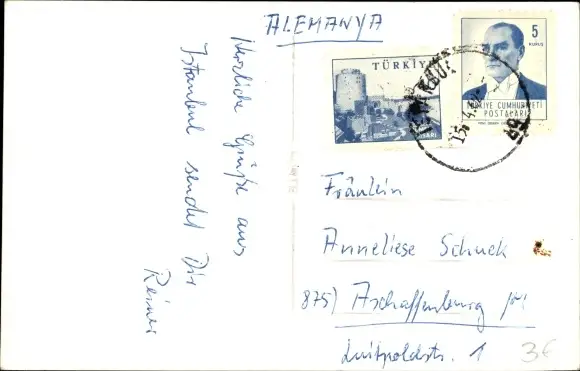 ALEMANYA
Herzliche Grüße aus
Istanbul sendet Dir
Reiner
TÜRKİYE
5
KURUŞ
TÜRKİYE CUMHURİYETİ
POSTALARI
15.4.
Fräulein
Anneliese Schuck
875) Aschaffenburg
Luitpoldstr. 1